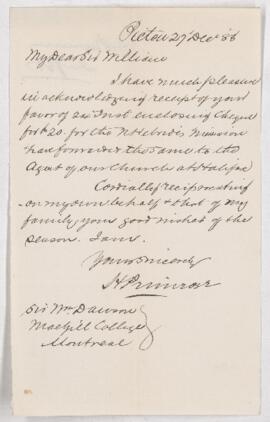 Pictou 27 Decr 88
My Dear Sir William
I have much pleasure
in acknowledging receipt of your
favor of 22 Inst enclosing Cheque
for $20. for the N Hebrides Mission
have forwarded the same to the
Agent of our Church at Halifax
Cordially reciprocating
on my own behalf & that of my
family your good wishes of the
season. I am.
Yours sincerely
H Primrose
Sir Wm Dawson
MacGill College
Montreal